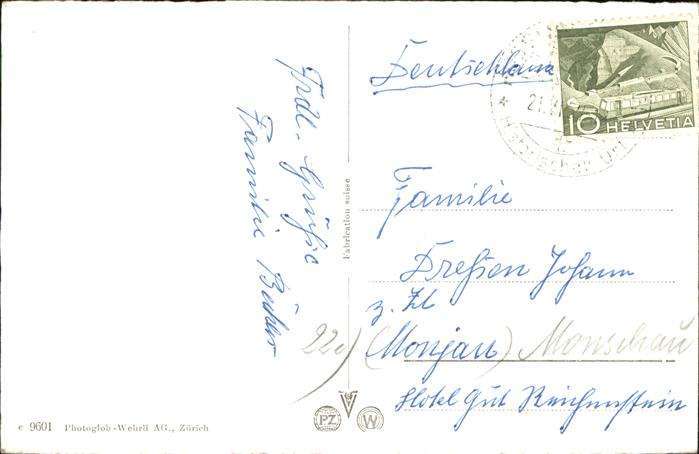 Frdl. Grüße
Familie Bädker
Fabrication suisse
Deutschland
10 HELVETIA
21.
Familie
Dreßen Johann
z. Zt
(Monjau) Monschau
Hotel Gut Reichenstein
22c)
PZ W
c 9601 Photoglob-Wehrli AG., Zürich